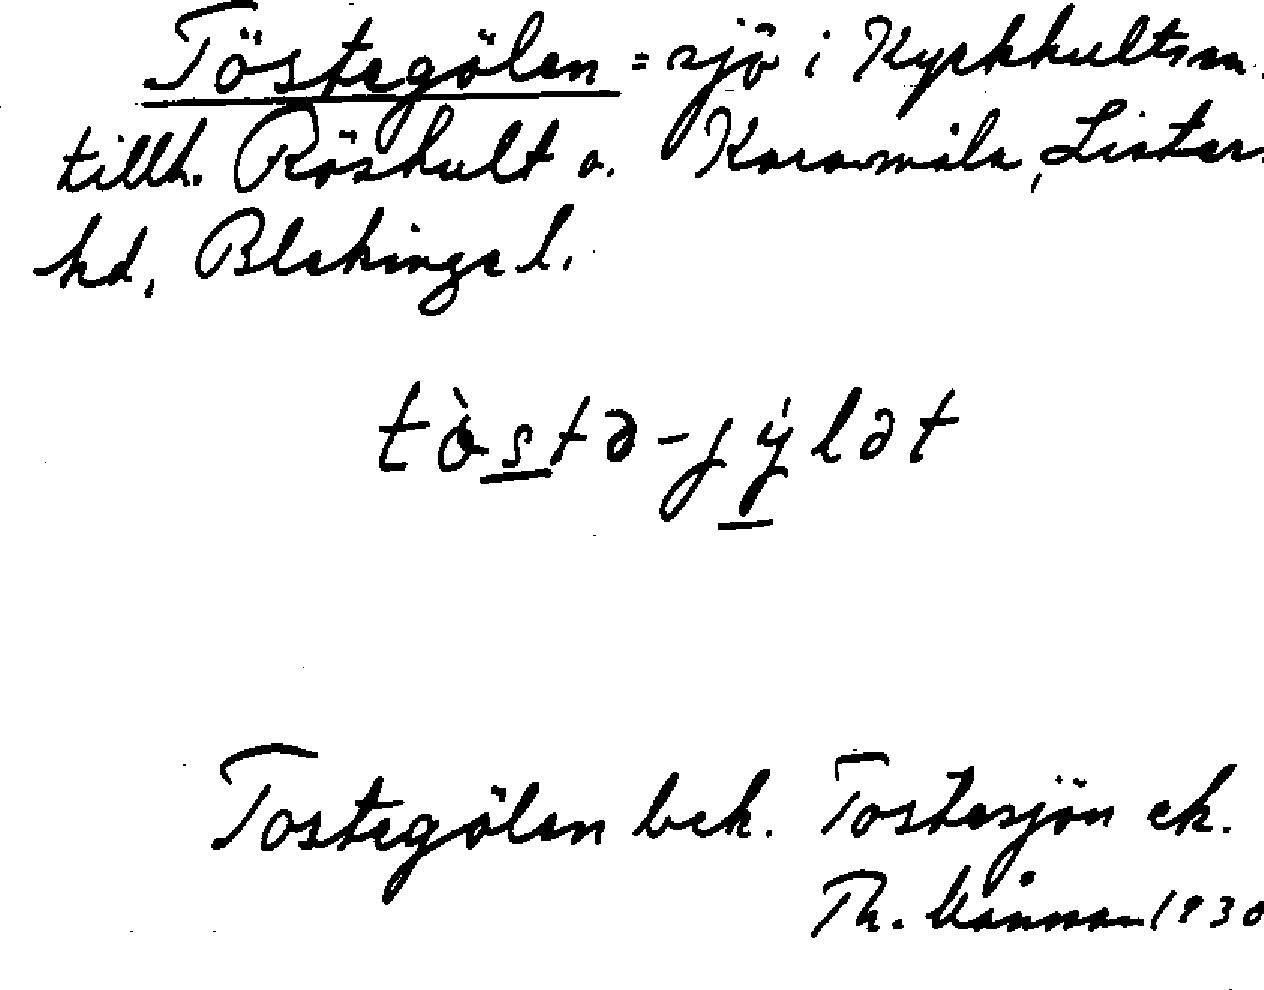 Töstegölen = sjö i Kyrkhultsn.
tillh. Röshult o. Karamåla, Listers
hd, Blekinge l.
tòstə-gýlət
Tostegölen bek. Tostesjön ek.
Th. 1930